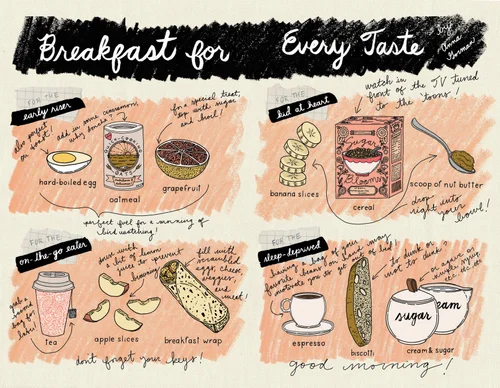 Breakfast for Every Taste
by
Anna
FOR THE
early riser
also perfect
on toast!
add in some cinnamon,
why don'cha
for a special treat,
top with sugar
and broil!
hard-boiled egg
OATS
oatmeal
grapefruit
perfect fuel for a morning of
bird watching!
FOR THE
kid at heart
watch in
front of the TV tuned
to the 'toons!
Sugar
Blooms
banana slices
cereal
scoop of nut butter
drop
right into
your
bowl!
FOR THE
on-the-go eater
grab a
bag for
later!
with
a bit of lemon
juice to prevent
browning
fill with
scrambled
egg, cheese,
veggies,
and
meat!
tea
apple slices
breakfast wrap
don't forget your keys!
FOR THE
sleep-deprived
having a bag of your
favorite beans on hand may
motivate you to get out of bed
to dunk or
not to dunk
sugar
cream
espresso
biscotti
cream & sugar
good morning!